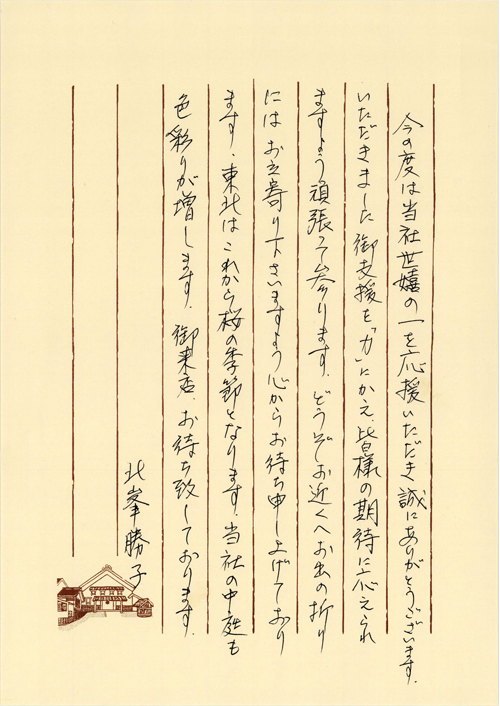 今の度は当社世嬉の一を応援いただき誠にありがとうございます.
いただきました御支援を「力」にかえ.皆様の期待に応えられ
ますよう頑張って参ります.どうぞお近くへお出の折り
にはお立寄り下さいますよう心からお待ち申し上げており
ます.東北はこれから桜の季節となります.当社の中庭も
色彩りが増します.御来店.お待ち致しております.
北峯勝子